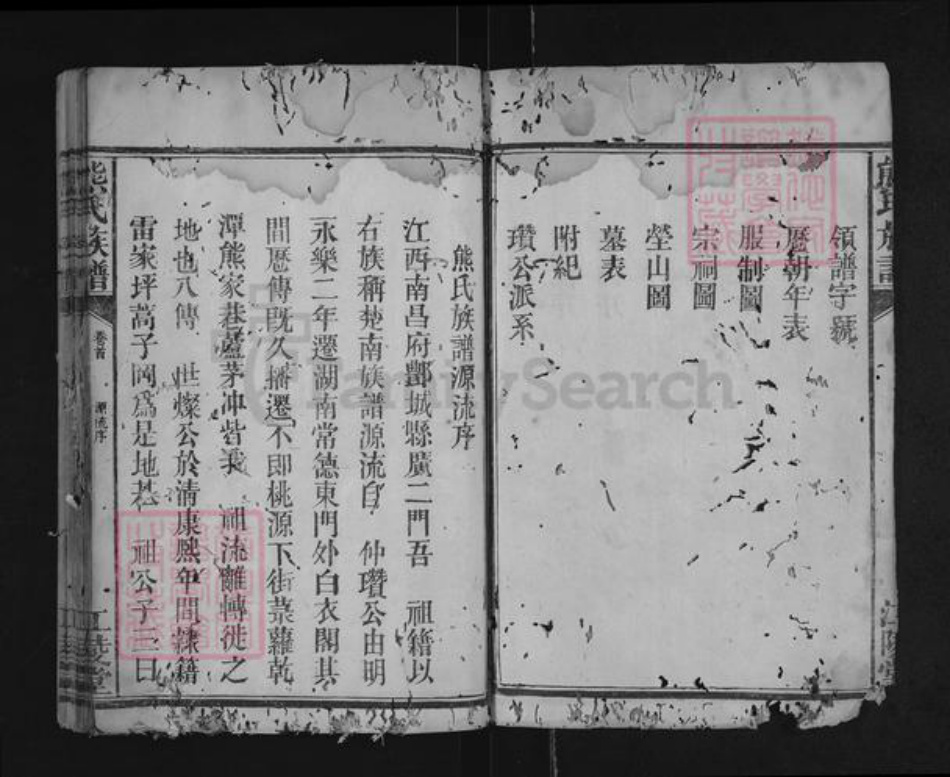 領譜字號
歷朝年表
服制圖
宗祠圖
塋山圖
墓表
附紀
瓚公派系
熊氏族譜源流序
江西南昌府酆城縣廣二門吾 祖籍以
右族稱楚南族譜源流自 仲瓚公由明
永樂二年遷湖南常德東門外白衣閣其
間歷傳既久播遷不即桃源下街菜蘿乾
潭熊家巷蘆茅冲皆我 祖流離轉徙之
地也八傳 世燦公於清康熙年間隸籍
雷家坪蒿子岡爲是地基 祖公子三曰
熊氏族譜
卷首
源流序
江陵堂
FamilySearch